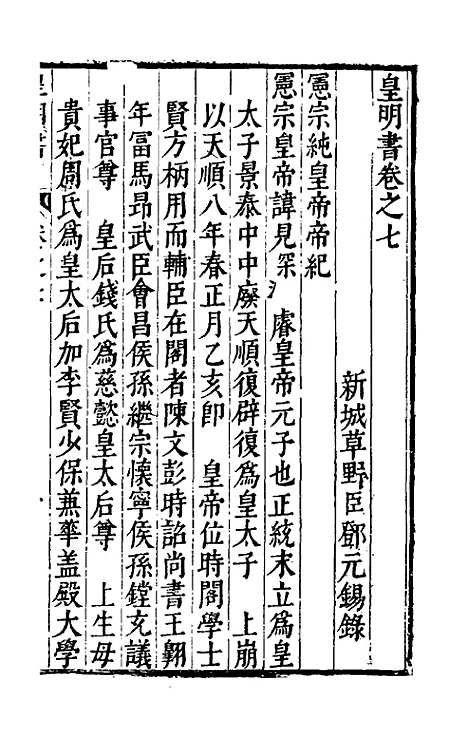 皇明書卷之七
新城草野臣鄧元錫錄
憲宗純皇帝帝紀
憲宗皇帝諱見深 睿皇帝元子也正統末立爲皇
太子景泰中中廢天順復辟復爲皇太子 上崩
以天順八年春正月乙亥即 皇帝位時閣學士
賢方柄用而輔臣在閣者陳文彭時詔尚書王翺
年冨馬昂武臣會昌侯孫繼宗懷寧侯孫鏜充議
事官尊 皇后錢氏爲慈懿皇太后尊 上生母
貴妃周氏爲皇太后加李賢少保兼華盖殿大學